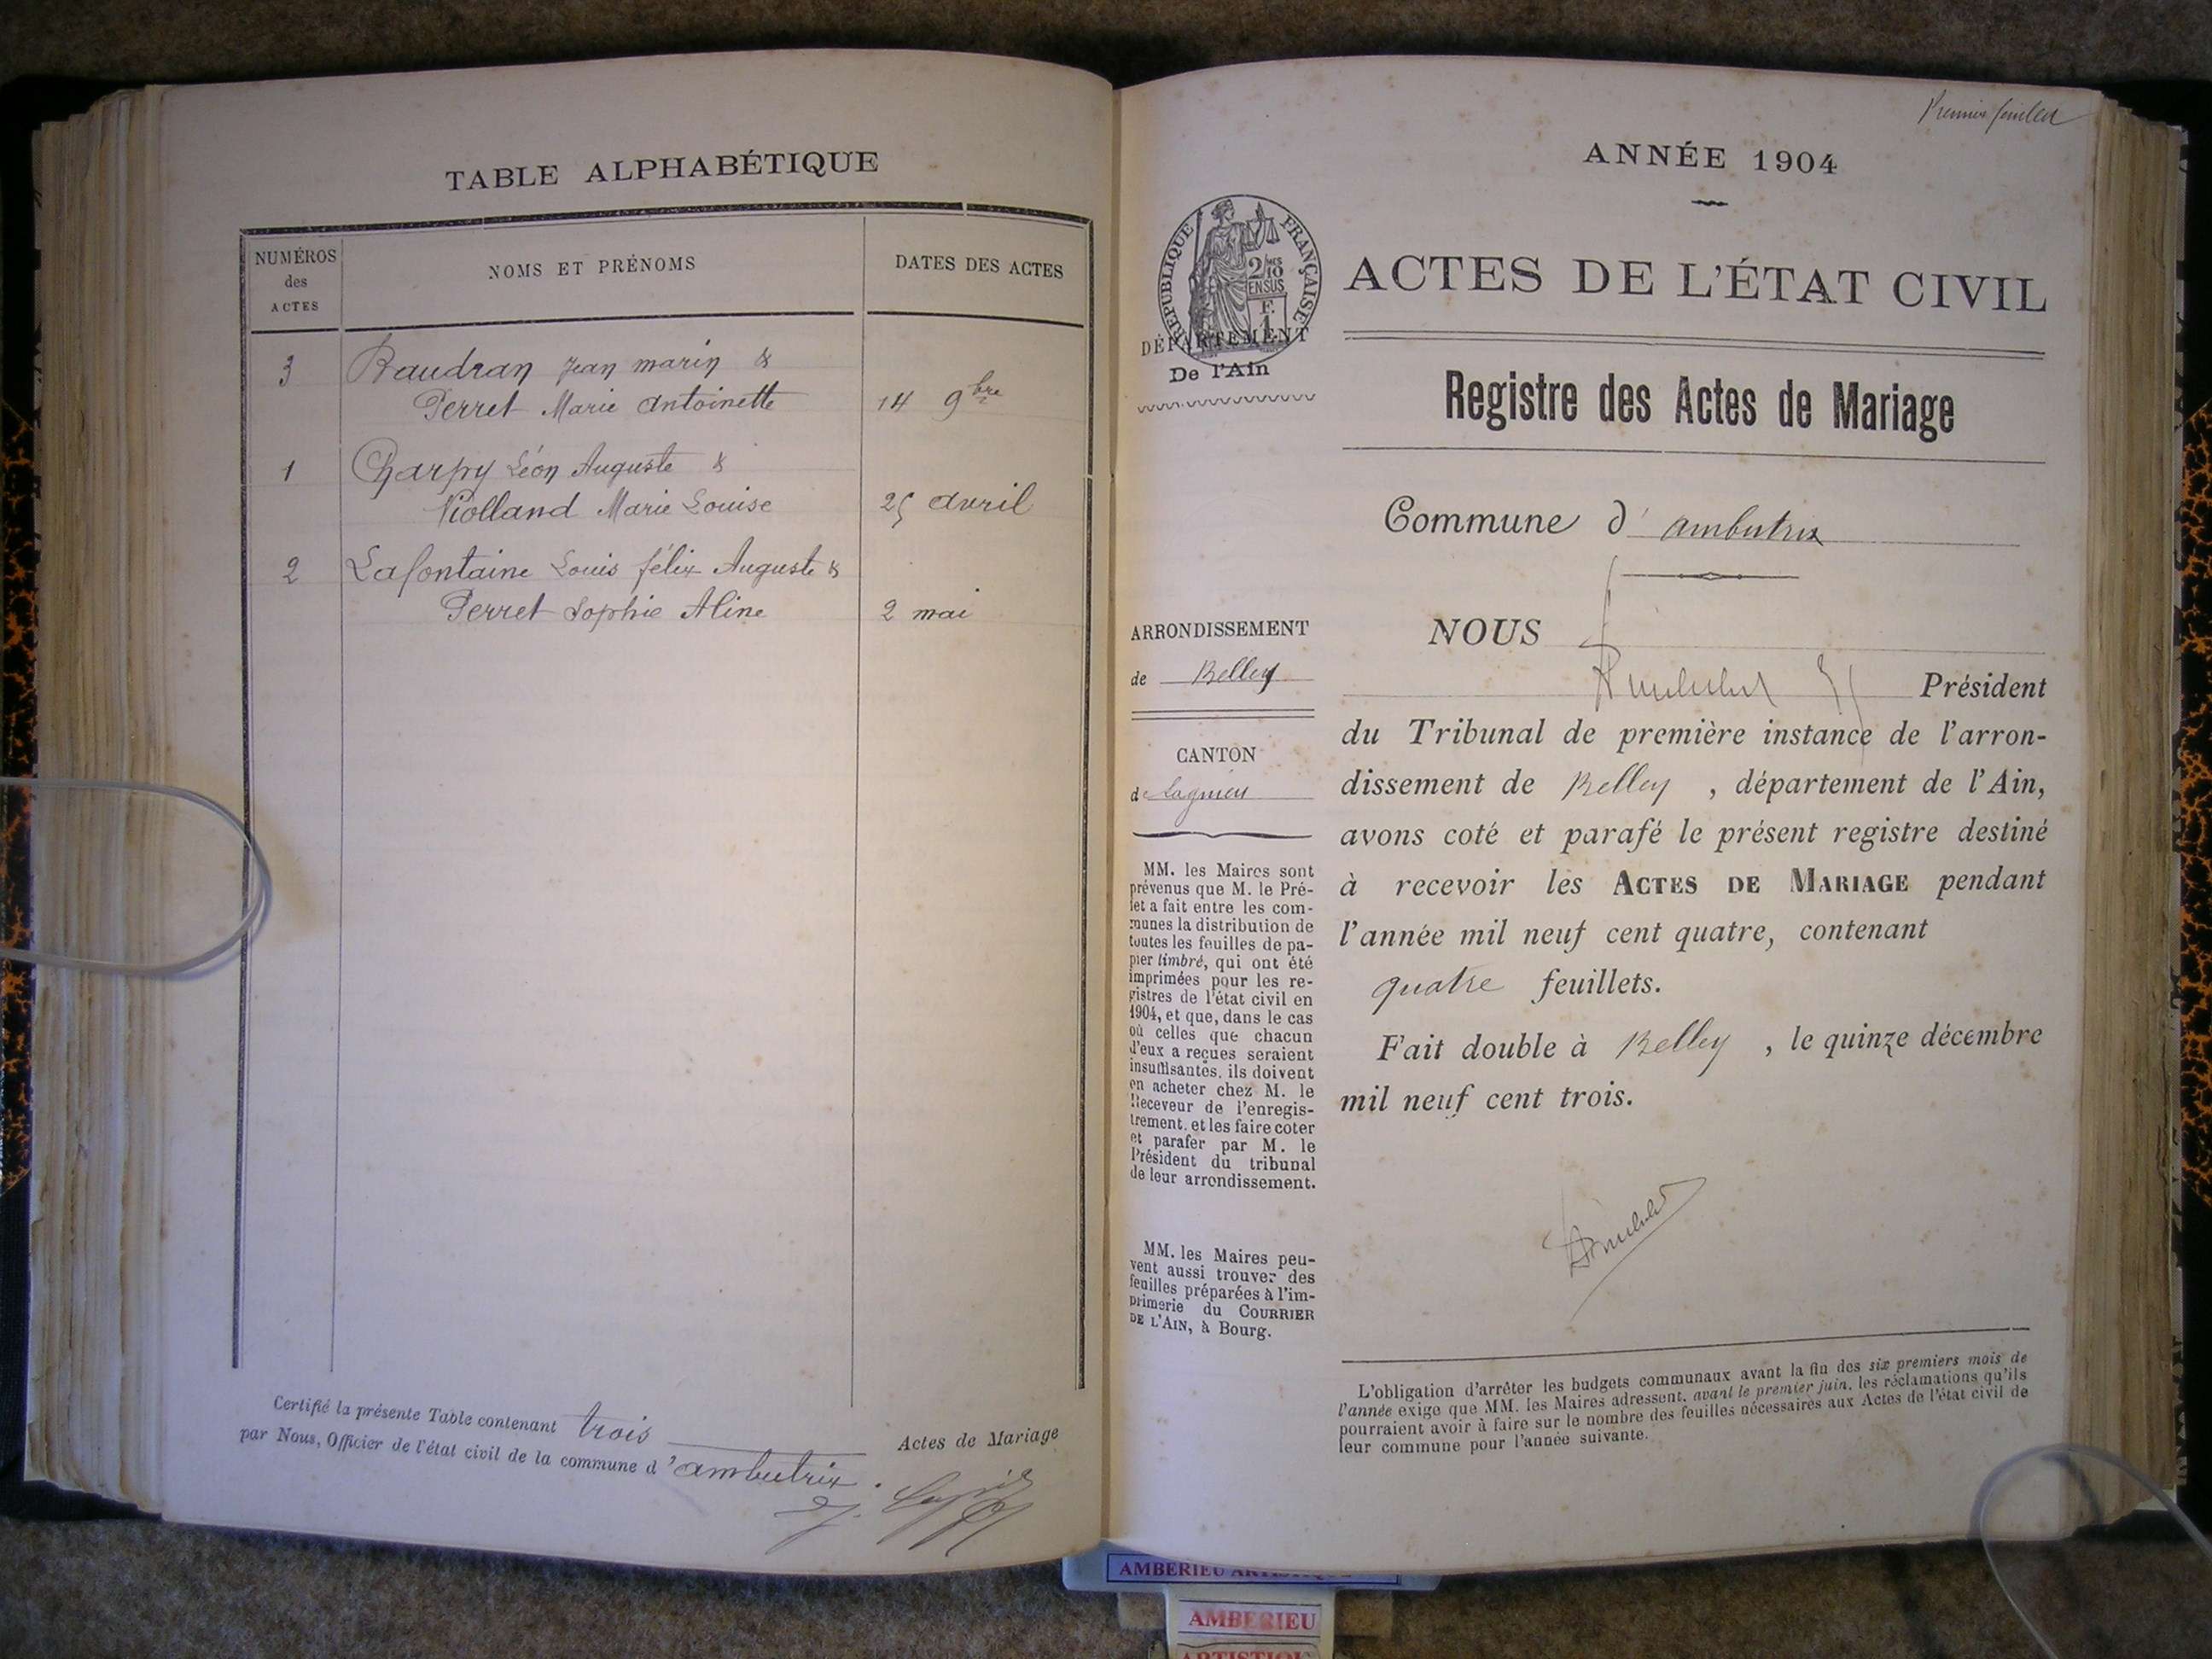 TABLE ALPHABÉTIQUE
NUMÉROS
des
ACTES
NOMS ET PRÉNOMS
DATES DES ACTES
3
Baudran Jean marin &
Perret Marie Antoinette
14 9bre
1
Charpy Léon Auguste &
Violland Marie Louise
25 avril
2
Lafontaine Louis félix Auguste &
Perret Sophie Aline
2 mai
Certifié la présente Table contenant trois Actes de Mariage
par Nous, Officier de l'état civil de la commune d'ambutrix.
Premier feuillet
ANNÉE 1904
RÉPUBLIQUE FRANÇAISE
2/10MES
EN SUS
F.
1
DÉPARTEMENT
De l'Ain
ACTES DE L'ÉTAT CIVIL
Registre des Actes de Mariage
Commune d'ambutrix
ARRONDISSEMENT
de Belley
CANTON
de Lagnieu
MM. les Maires sont
prévenus que M. le Pré-
fet a fait entre les com-
munes la distribution de
toutes les feuilles de pa-
pier timbré, qui ont été
imprimées pour les re-
gistres de l'état civil en
1904, et que, dans le cas
où celles que chacun
d'eux a reçues seraient
insuffisantes, ils doivent
en acheter chez M. le
Receveur de l'enregis-
trement, et les faire coter
et parafer par M. le
Président du tribunal
de leur arrondissement.
MM. les Maires peu-
vent aussi trouver des
feuilles préparées à l'im-
primerie du COURRIER
DE L'AIN, à Bourg.
NOUS
Président
du Tribunal de première instance de l'arron-
dissement de Belley, département de l'Ain,
avons coté et parafé le présent registre destiné
à recevoir les ACTES DE MARIAGE pendant
l'année mil neuf cent quatre, contenant
quatre feuillets.
Fait double à Belley, le quinze décembre
mil neuf cent trois.
L'obligation d'arrêter les budgets communaux avant la fin des six premiers mois de
l'année exige que MM. les Maires adressent, avant le premier juin, les réclamations qu'ils
pourraient avoir à faire sur le nombre des feuilles nécessaires aux Actes de l'état civil de
leur commune pour l'année suivante.
AMBERIEU ARTISTIQUE
AMBERIEU
ARTISTIQUE